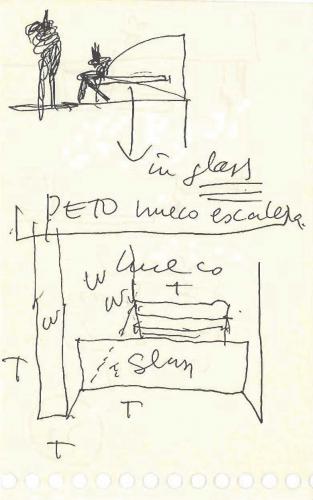 in glass
PETO hueco escalera
W hueco
W T
W
T glass
T
T